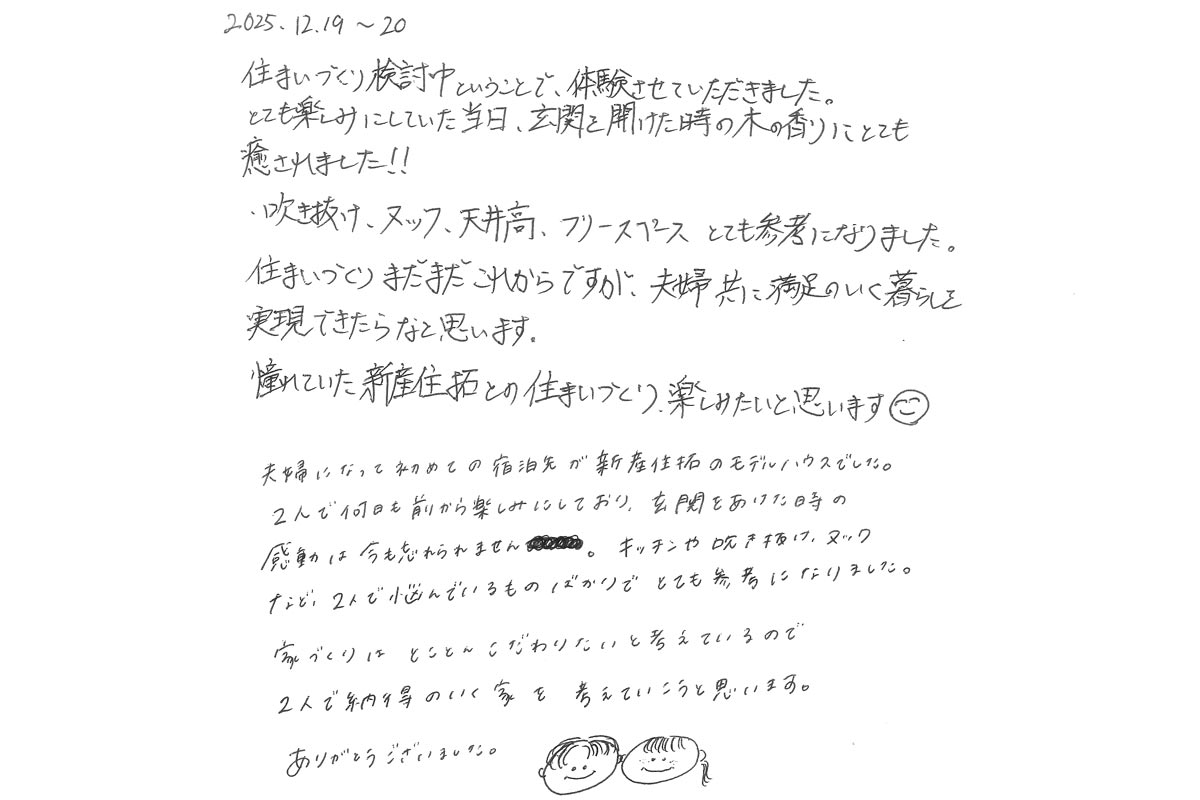 2025.12.19～20
住まいづくり検討中ということで、体験させていただきました。
とても楽しみにしていた当日、玄関を開けた時の木の香りにとても
癒されました!!
・吹き抜け、ヌック、天井高、フリースペース とても参考になりました。
住まいづくりまだまだこれからですが、夫婦共に満足のいく暮らしを
実現できたらなと思います。
憧れていた新産住拓との住まいづくり、楽しみたいと思います
夫婦になって初めての宿泊先が新産住拓のモデルハウスでした。
2人で何日も前から楽しみにしており、玄関をあけた時の
感動は今も忘れられません。キッチンや吹き抜け、ヌック
など、2人で悩んでいるものばかりでとても参考になりました。
家づくりはとことんこだわりたいと考えているので
2人で納得のいく家を考えていこうと思います。
ありがとうございました。